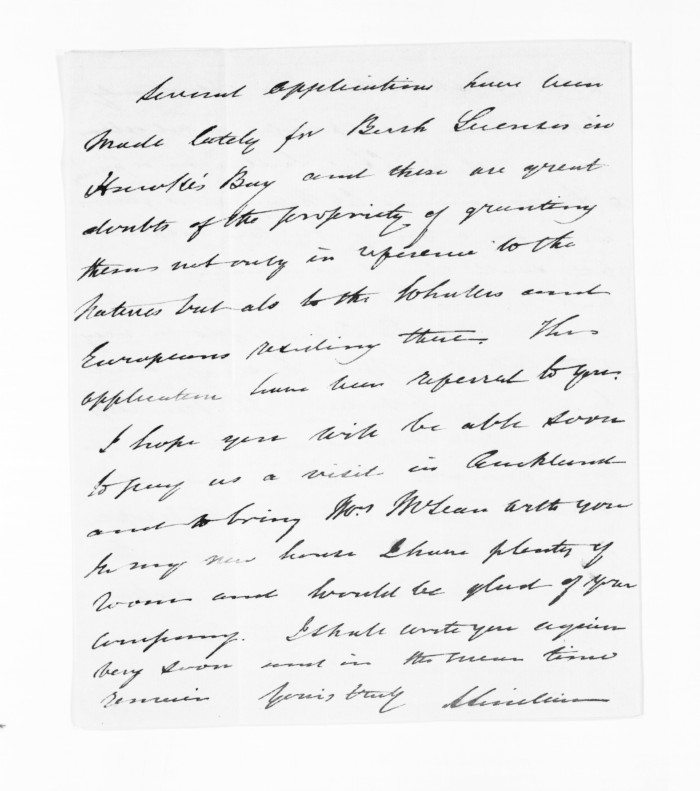 Several applications have been
made lately for Bush Licenses in
Hawke's Bay and there are great
doubts of the propriety of granting
them not only in reference to the
Natives but als to the Whalers and
Europeans residing there. The
application have been referred to you.
I hope you will be able soon
to pay us a visit in Auckland
and to bring Mrs McLean with you
In my new house I have plenty of
room and would be glad of your
company. I shall write you again
very soon and in the mean time
remain Yours truly